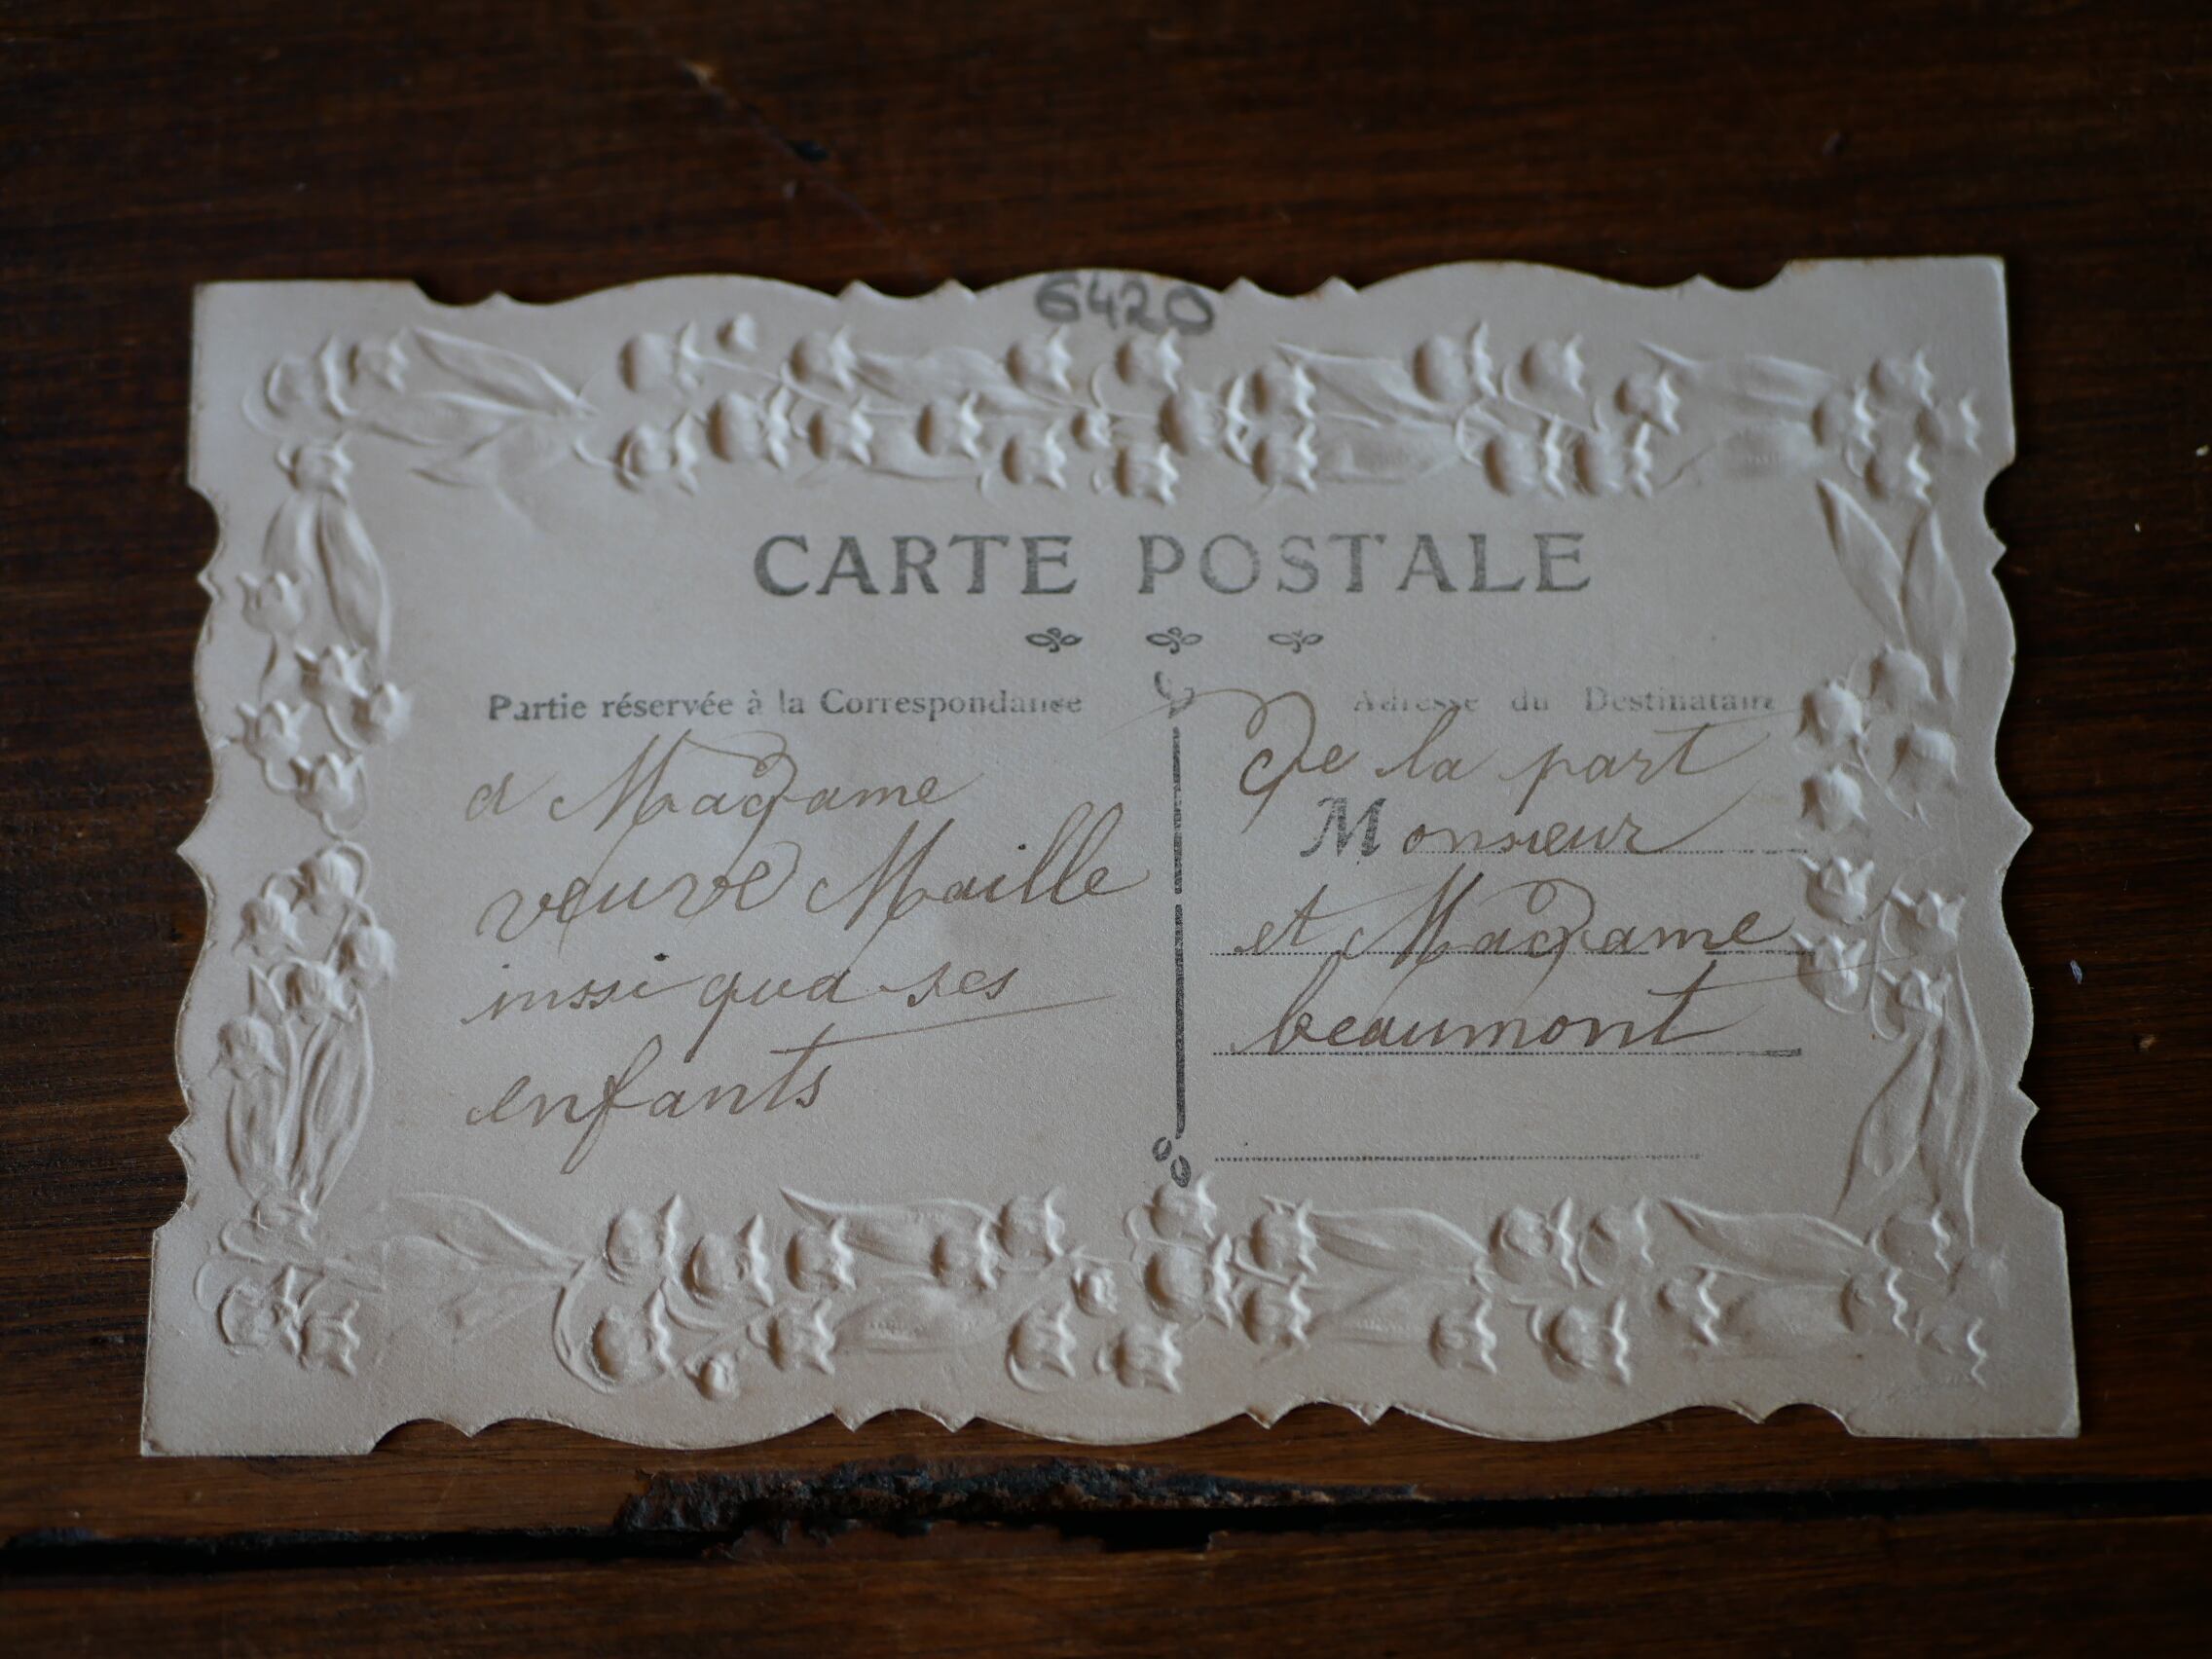 6420
CARTE POSTALE
Partie réservée à la Correspondanse
Adresse du Destinataire
a Madame
veuve Maille
inssi qua ses
enfants
De la part
Monsieur
et Madame
beaumont